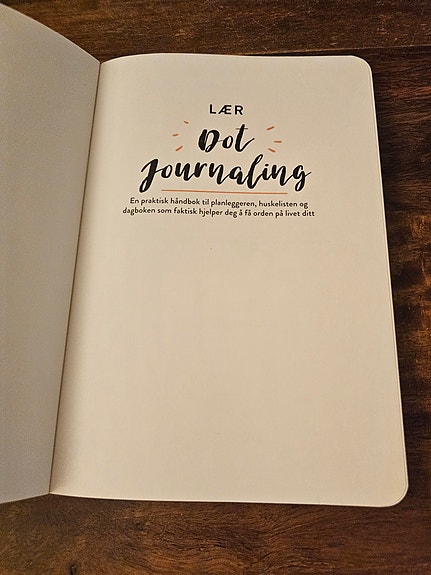 LÆR
Dot
Journaling
En praktisk håndbok til planleggeren, huskelisten og
dagboken som faktisk hjelper deg å få orden på livet ditt